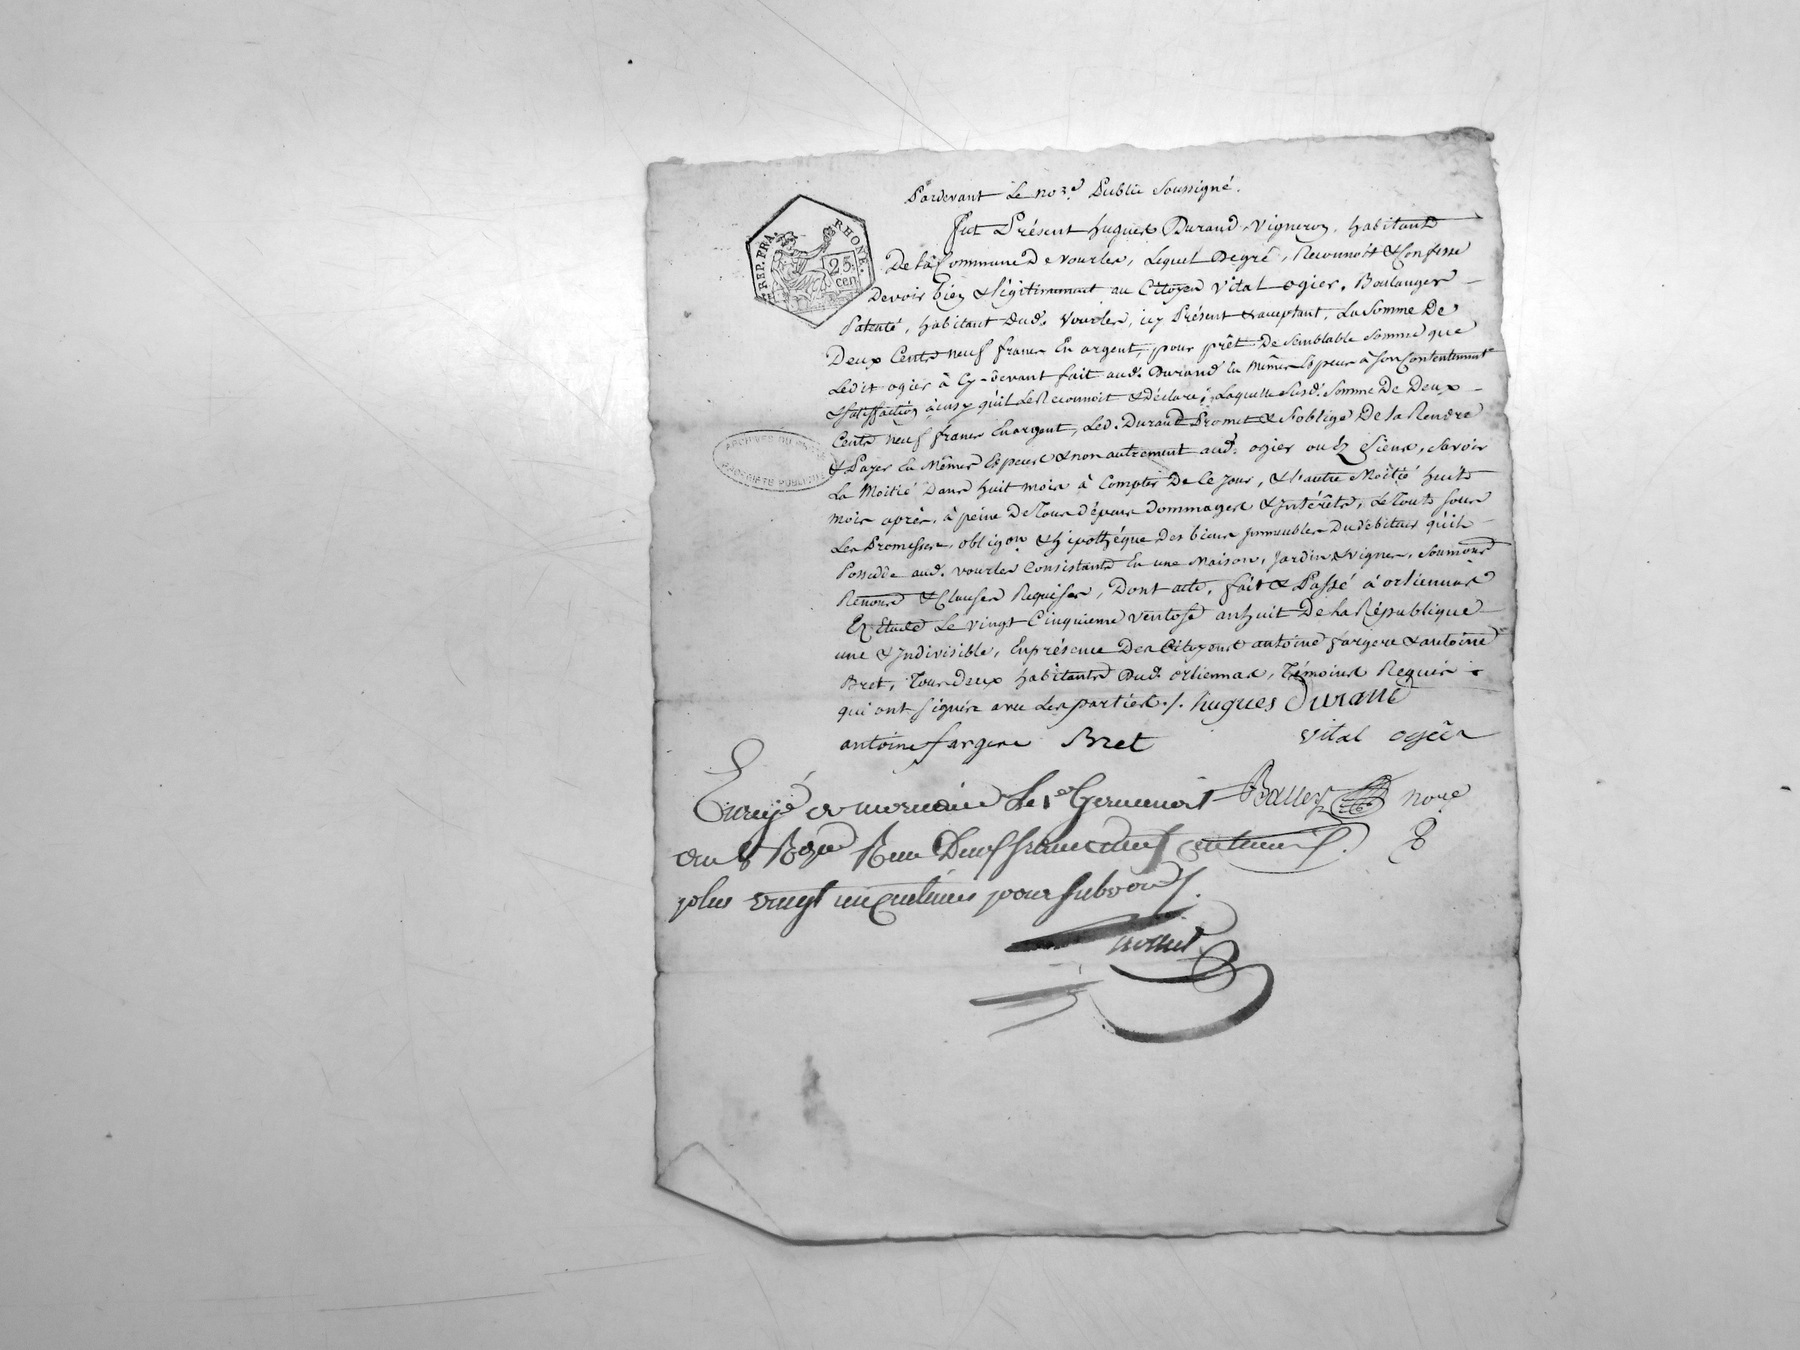 Pardevant Le no.re Public Soussigné.
Fut Présent hugues Durand, Vigneron, habitant
De la Commune De vourles, Lequel De gré, Reconnoit & Confesse
Devoir bien & légitimement au Citoyen Vital ogier, Boulanger
Patenté, habitant dud. Vourles, icy Présent & acceptant, La Somme De
Deux Cents neuf francs En argent, pour prêt De Semblable Somme que
Ledit ogier à Cy-devant fait aud. Durand En mêmes Especes à Son Contentement
& Satisffaction ainsy qu'il Le Reconnoit & déclare; Laquelle Susd. Somme De Deux
Cents neuf francs En argent, Led. Durand Promet & S'oblige De la Rendre
& Payer En Mêmes Especes & non autrement aud. ogier ou és Siens, Savoir
La Moitié Dans huit mois à Compter De Ce Jour, & l'autre Moitié huit
mois après, à peine De Tous dépens dommages & Intérêts, Le Tout Sous
Les Promesses, oblig.on & hipothéque des biens Immeubles Du débiteur qu'il
Possede aud. vourles Consistants En une Maison, Jardin & vignes, Soumons
Renons & Clauses Requises, Dont acte, fait & Passé à orliennas
En Etude Le vingt Cinquieme ventose an huit De La République
une & Indivisible, En présence Des Citoyens antoine fargere & antoine
Bret, Tous deux habitants Dud. orliennas, Témoins Requis
qui ont Signés avec Les parties ./. hugues Durand
antoine fargere Bret Vital ogier
REP. FRA. RHONE.
25 cen
ARCHIVES DU
PROPRIÉTÉ PUBLIQUE
Enregé à mornand Le 1er Germinal
an 8 Reçu Deux francs centimes.
plus vingt un centimes pour Subvon
no.re